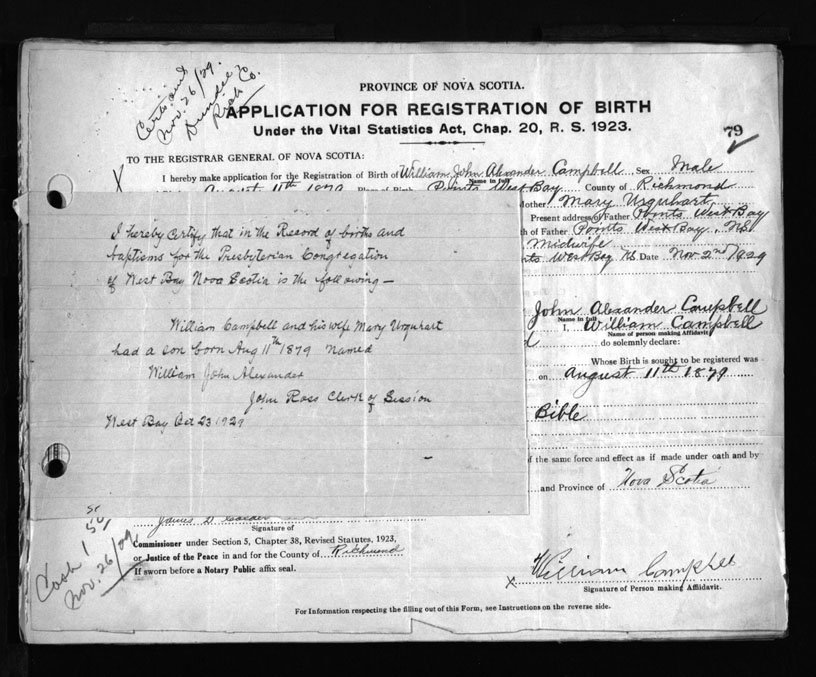 Nov. 26/29.
Dundee
PROVINCE OF NOVA SCOTIA.
APPLICATION FOR REGISTRATION OF BIRTH
Under the Vital Statistics Act, Chap. 20, R. S. 1923.
79
TO THE REGISTRAR GENERAL OF NOVA SCOTIA:
I hereby make application for the Registration of Birth of William John Alexander Campbell Sex Male
Name in full
August 11th 1879 Points West Bay County of Richmond
Mother Mary Urquhart
Present address of Father Points West Bay
of Father Points West Bay, N.S.
Midwife
West Bay N.S. Date Nov. 2nd/1929
I hereby certify that in the Record of births and
baptisms for the Presbyterian Congregation
of West Bay Nova Scotia is the following—
William Campbell and his wife Mary Urquhart
had a son born Aug 11th 1879 named
William John Alexander
John Ross Clerk of Session
West Bay Oct 23 1929
John Alexander Campbell
Name in full
I, William Campbell
Name of person making Affidavit
do solemnly declare:
Whose Birth is sought to be registered was
on August 11th 1879
Bible
of the same force and effect as if made under oath and by
and Province of Nova Scotia
James D.
Signature of
Commissioner under Section 5, Chapter 38, Revised Statutes, 1923,
or Justice of the Peace in and for the County of Richmond
If sworn before a Notary Public affix seal.
Cash 1 50
Nov. 26/29
X William Campbell
Signature of Person making Affidavit.
For Information respecting the filling out of this Form, see Instructions on the reverse side.